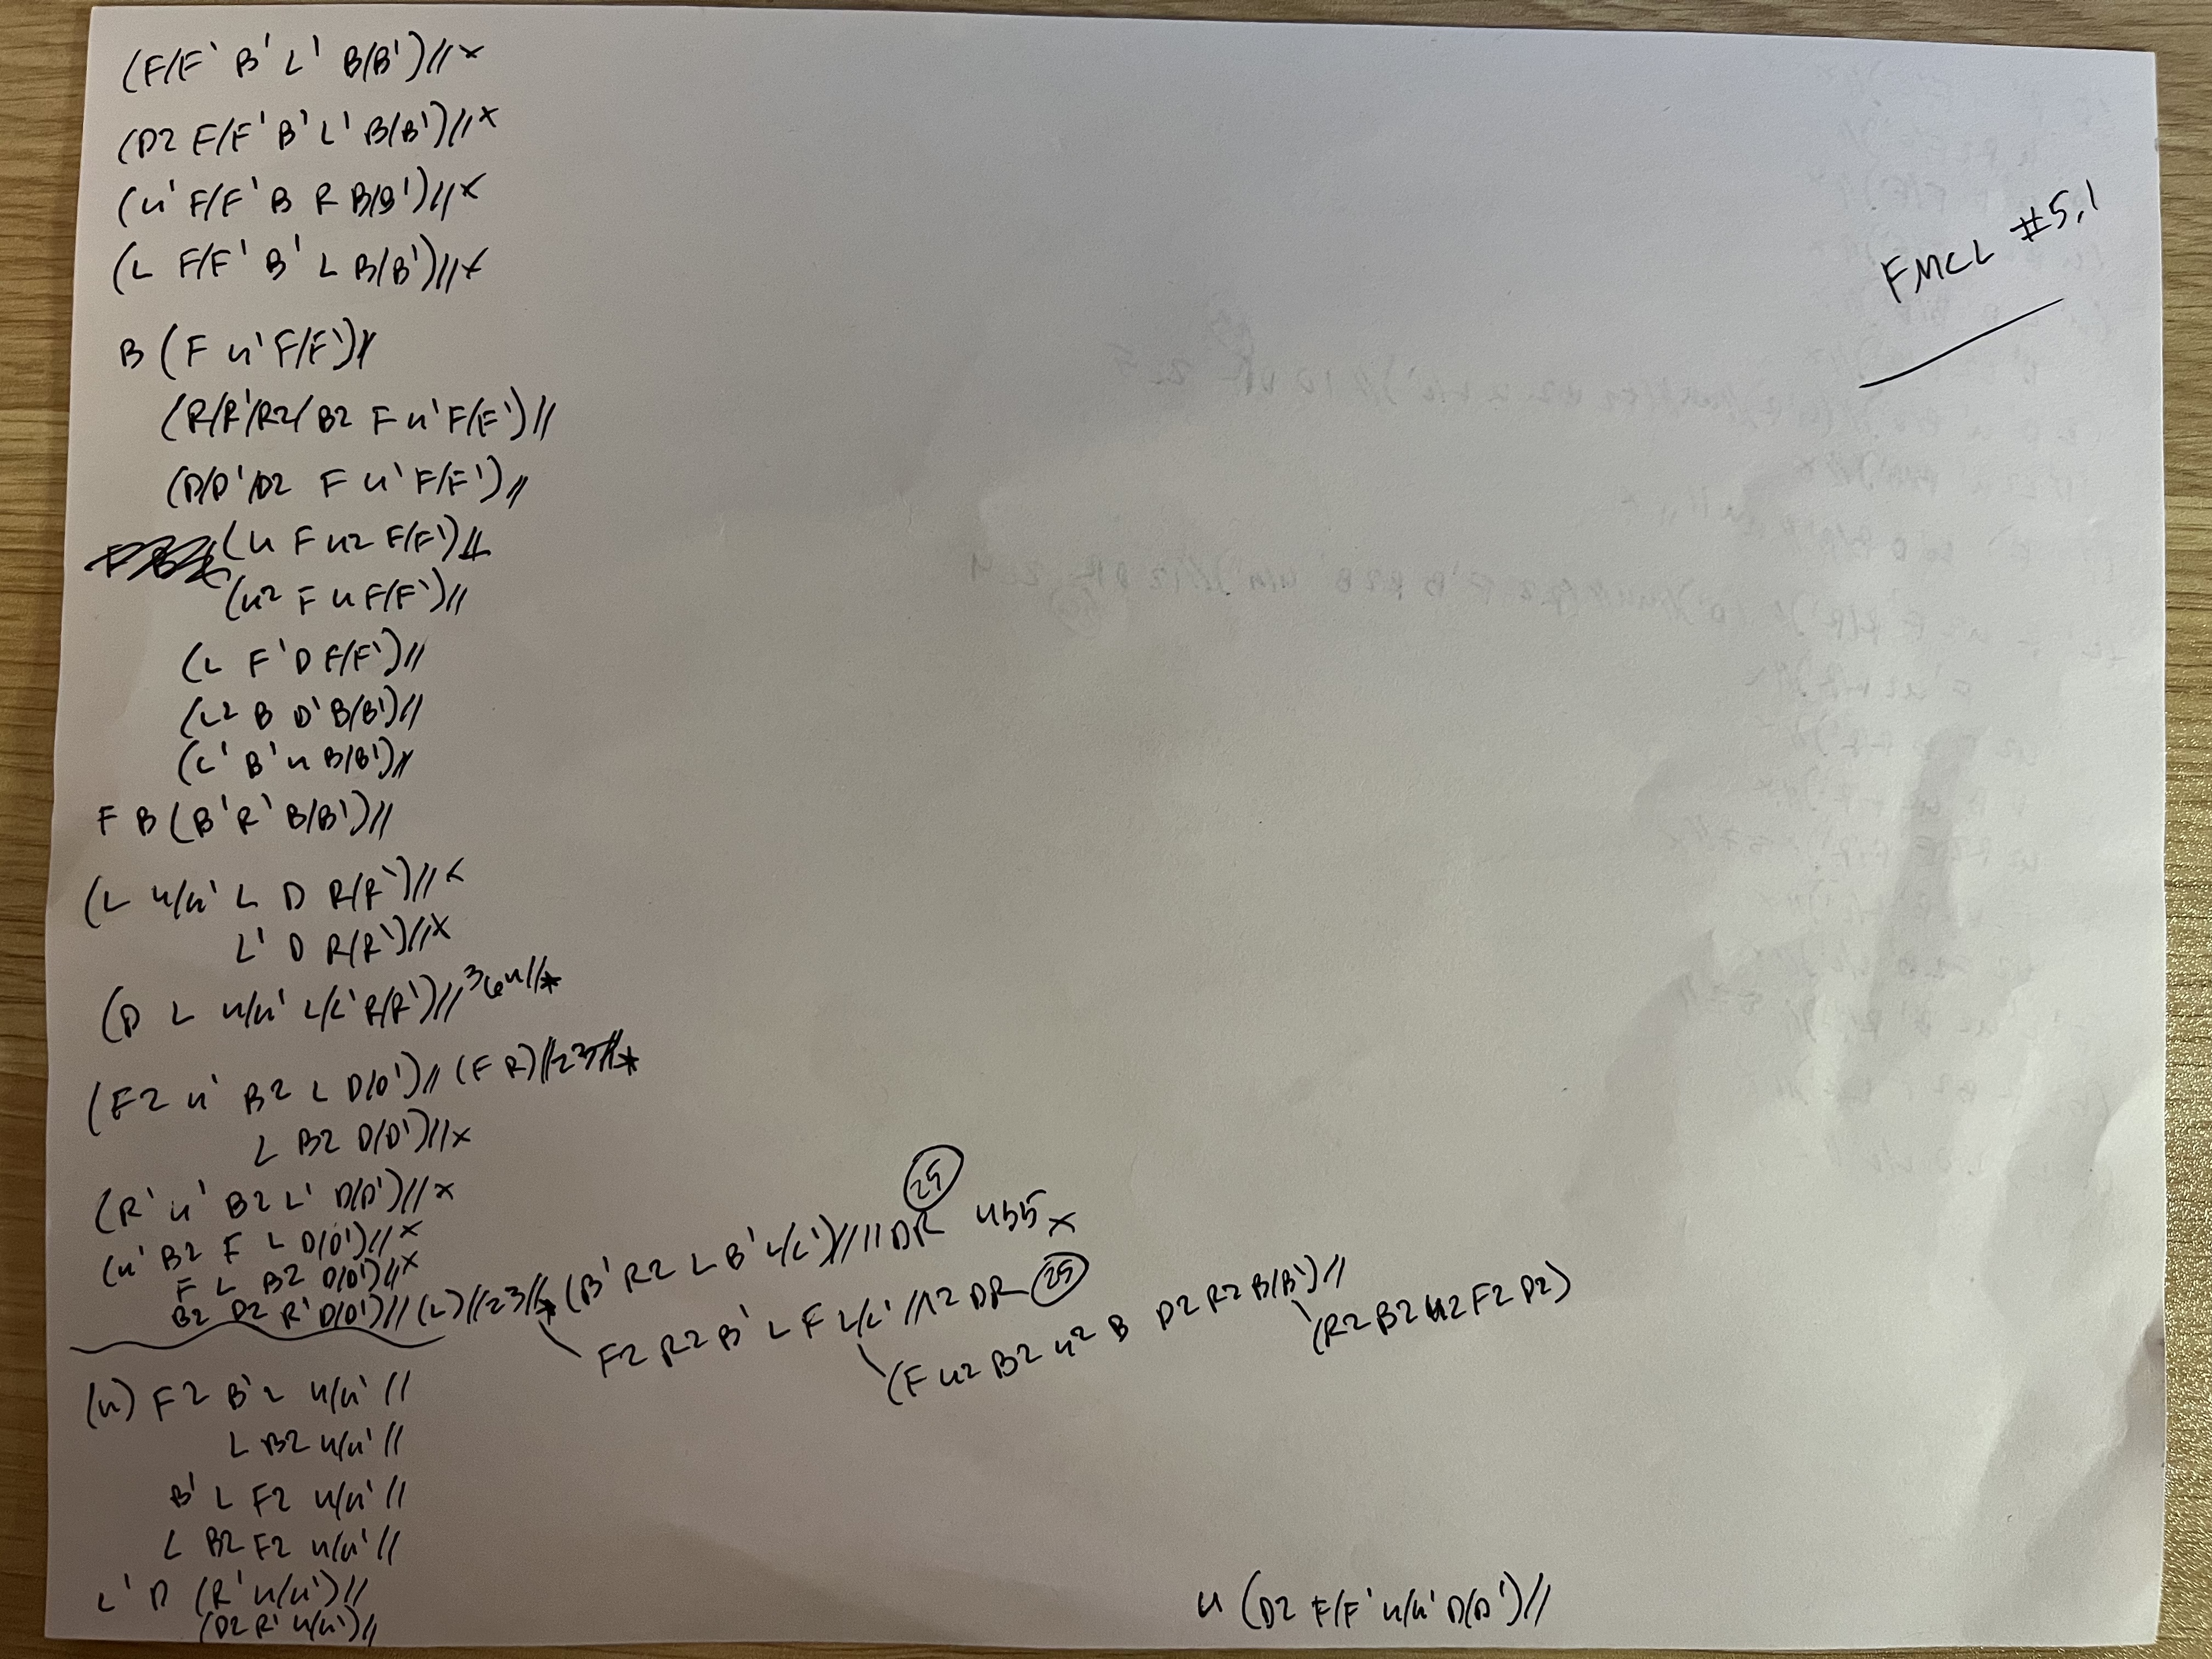 (F/F' B' L' B/B')//x
(D2 F/F' B' L' B/B')//x
(u' F/F' B R B/B')//x
(L F/F' B' L B/B')//x
FMCL #5.1
B (F u' F/F')//
(R/R'/R2/B2 F u' F/F')//
(D/D'/D2 F u' F/F')//
(u F u2 F/F')//
(u2 F u F/F')//
(L F' D F/F')//
(L2 B D' B/B')//
(L' B' u B/B')//
F B (B' R' B/B')//
(L u/u' L D R/R')//x
L' D R/R')//x
(D L u/u' L/L' R/R')//
(F2 u' B2 L D/D')// (F R)//
L B2 D/D')//x
(R' u' B2 L' D/D')//x
(u' B2 F L D/D')//x
F L B2 D/D')//x
B2 D2 R' D/D')//(L)//23//* (B' R2 L B' L/L')//11 DR 4b5 x
F2 R2 B' L F L/L' //12 DR 25
(F u2 B2 u2 B D2 R2 B/B')//
(R2 B2 u2 F2 D2)
(u) F2 B' L u/u' //
L B2 u/u' //
B' L F2 u/u' //
L B2 F2 u/u' //
L' D (R' u/u')//
(D2 R' u/u')//
u (D2 F/F' u/u' D/D')//